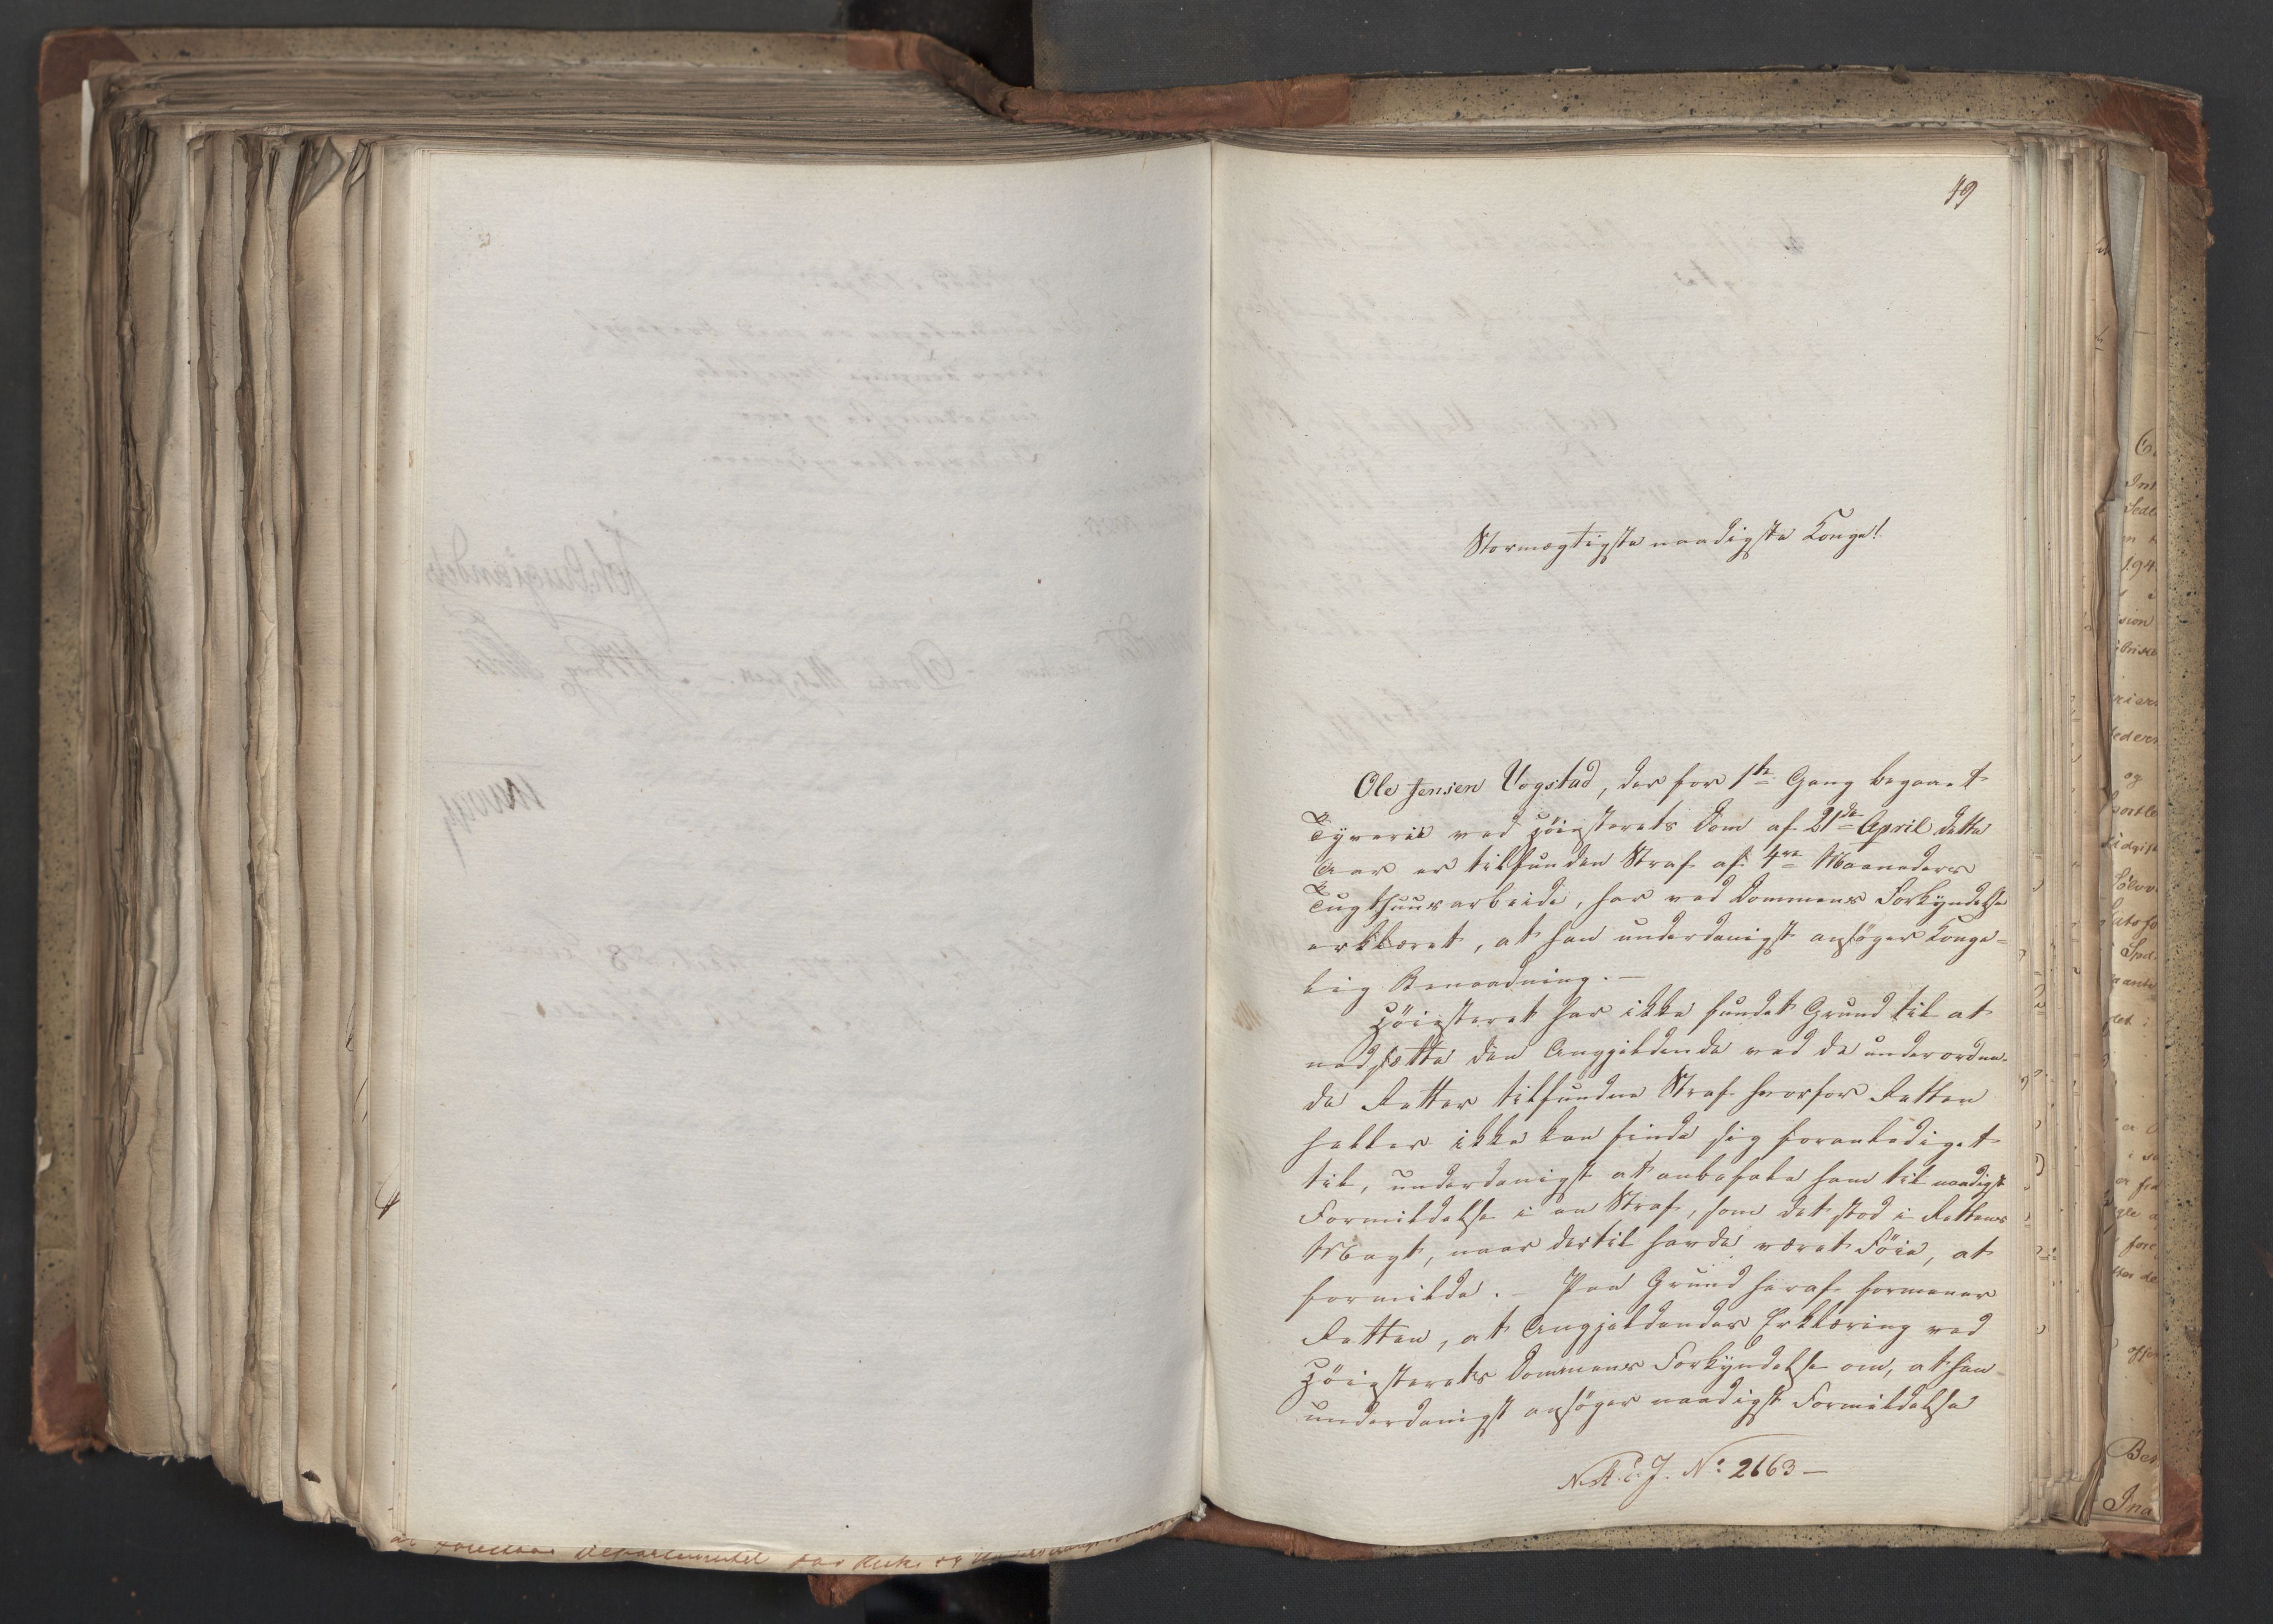 49
Stormægtigste naadigste Konge!
Ole Jensen Vogstad, der for 1ste Gang begaaet
Tyverie ved Höiesterets Dom af 21de April dette
Aar er tilfunden Straf af 4re Maaneders
Tugthuusarbeide, har ved Dommens Forkyndelse
erklæret, at han underdanigst ansöger Konge-
lig Benaadning. –
Höiesteret har ikke fundet Grund til at
nedsætte den Angjeldende ved de underordne-
de Retter tilfundne Straf hvorfor Retten
heller ikke kan finde sig foranlediget
til, underdanigst at anbefale ham til naadigst
Formildelse i en Straf, som det stod i Rettens
Magt, naar dertil havde været Föie, at
formilde. – Paa Grund heraf formener
Retten, at Angjeldendes Erklæring ved
Höiesterets Dommens Forkyndelse om, at han
underdanigst ansöger naadigst Formildelse
No 2663 –